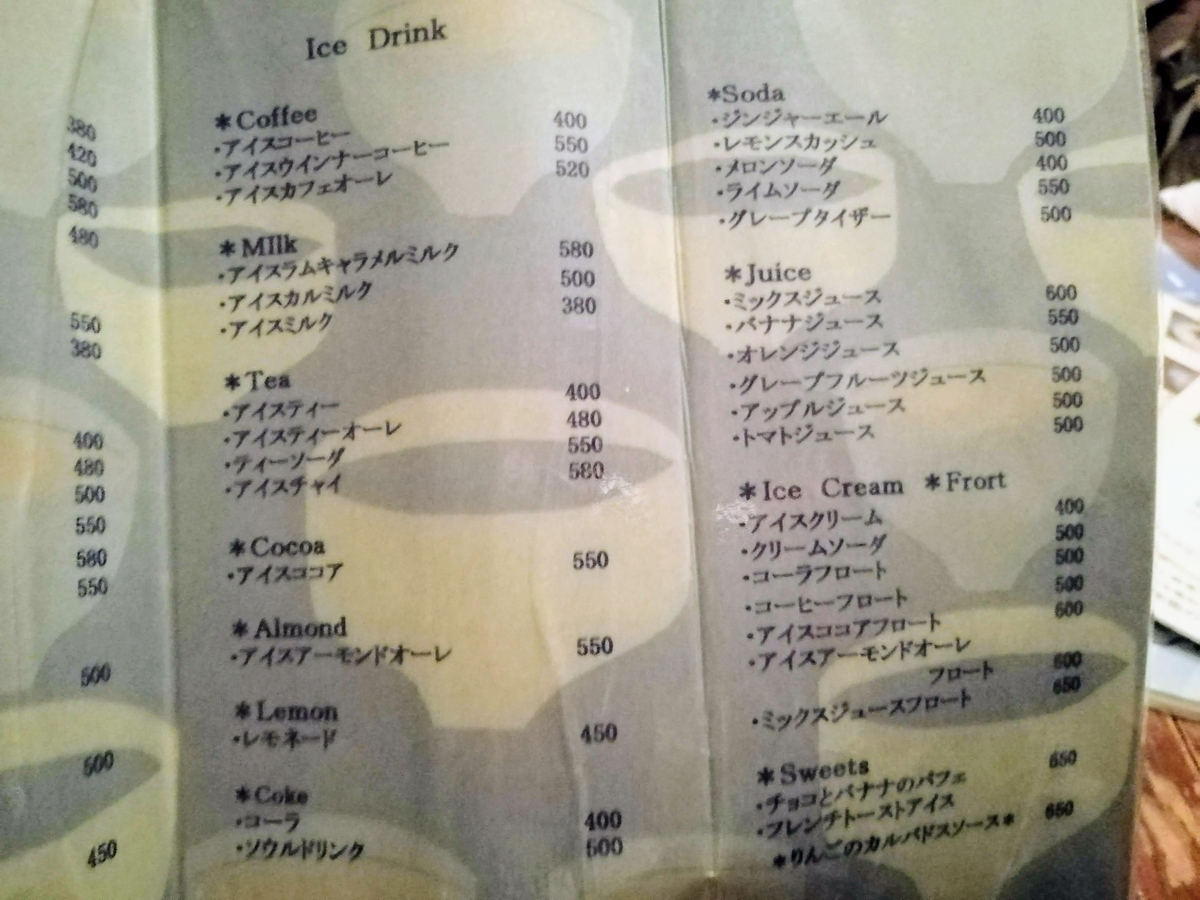 380
420
500
580
480
550
380
400
480
500
550
580
550
500
500
450
Ice Drink
*Coffee
・アイスコーヒー 400
・アイスウインナーコーヒー 550
・アイスカフェオーレ 520
*MIlk
・アイスラムキャラメルミルク 580
・アイスカルミルク 500
・アイスミルク 380
*Tea
・アイスティー 400
・アイスティーオーレ 480
・ティーソーダ 550
・アイスチャイ 580
*Cocoa
・アイスココア 550
*Almond
・アイスアーモンドオーレ 550
*Lemon
・レモネード 450
*Coke
・コーラ 400
・ソウルドリンク 500
*Soda
・ジンジャーエール 400
・レモンスカッシュ 500
・メロンソーダ 400
・ライムソーダ 550
・グレープタイザー 500
*Juice
・ミックスジュース 600
・バナナジュース 550
・オレンジジュース 500
・グレープフルーツジュース 500
・アップルジュース 500
・トマトジュース 500
*Ice Cream *Frort
・アイスクリーム 400
・クリームソーダ 500
・コーラフロート 500
・コーヒーフロート 500
・アイスココアフロート 600
・アイスアーモンドオーレ
フロート 600
・ミックスジュースフロート 650
*Sweets
・チョコとバナナのパフェ 650
・フレンチトーストアイス
*りんごのカルバドスソース* 650